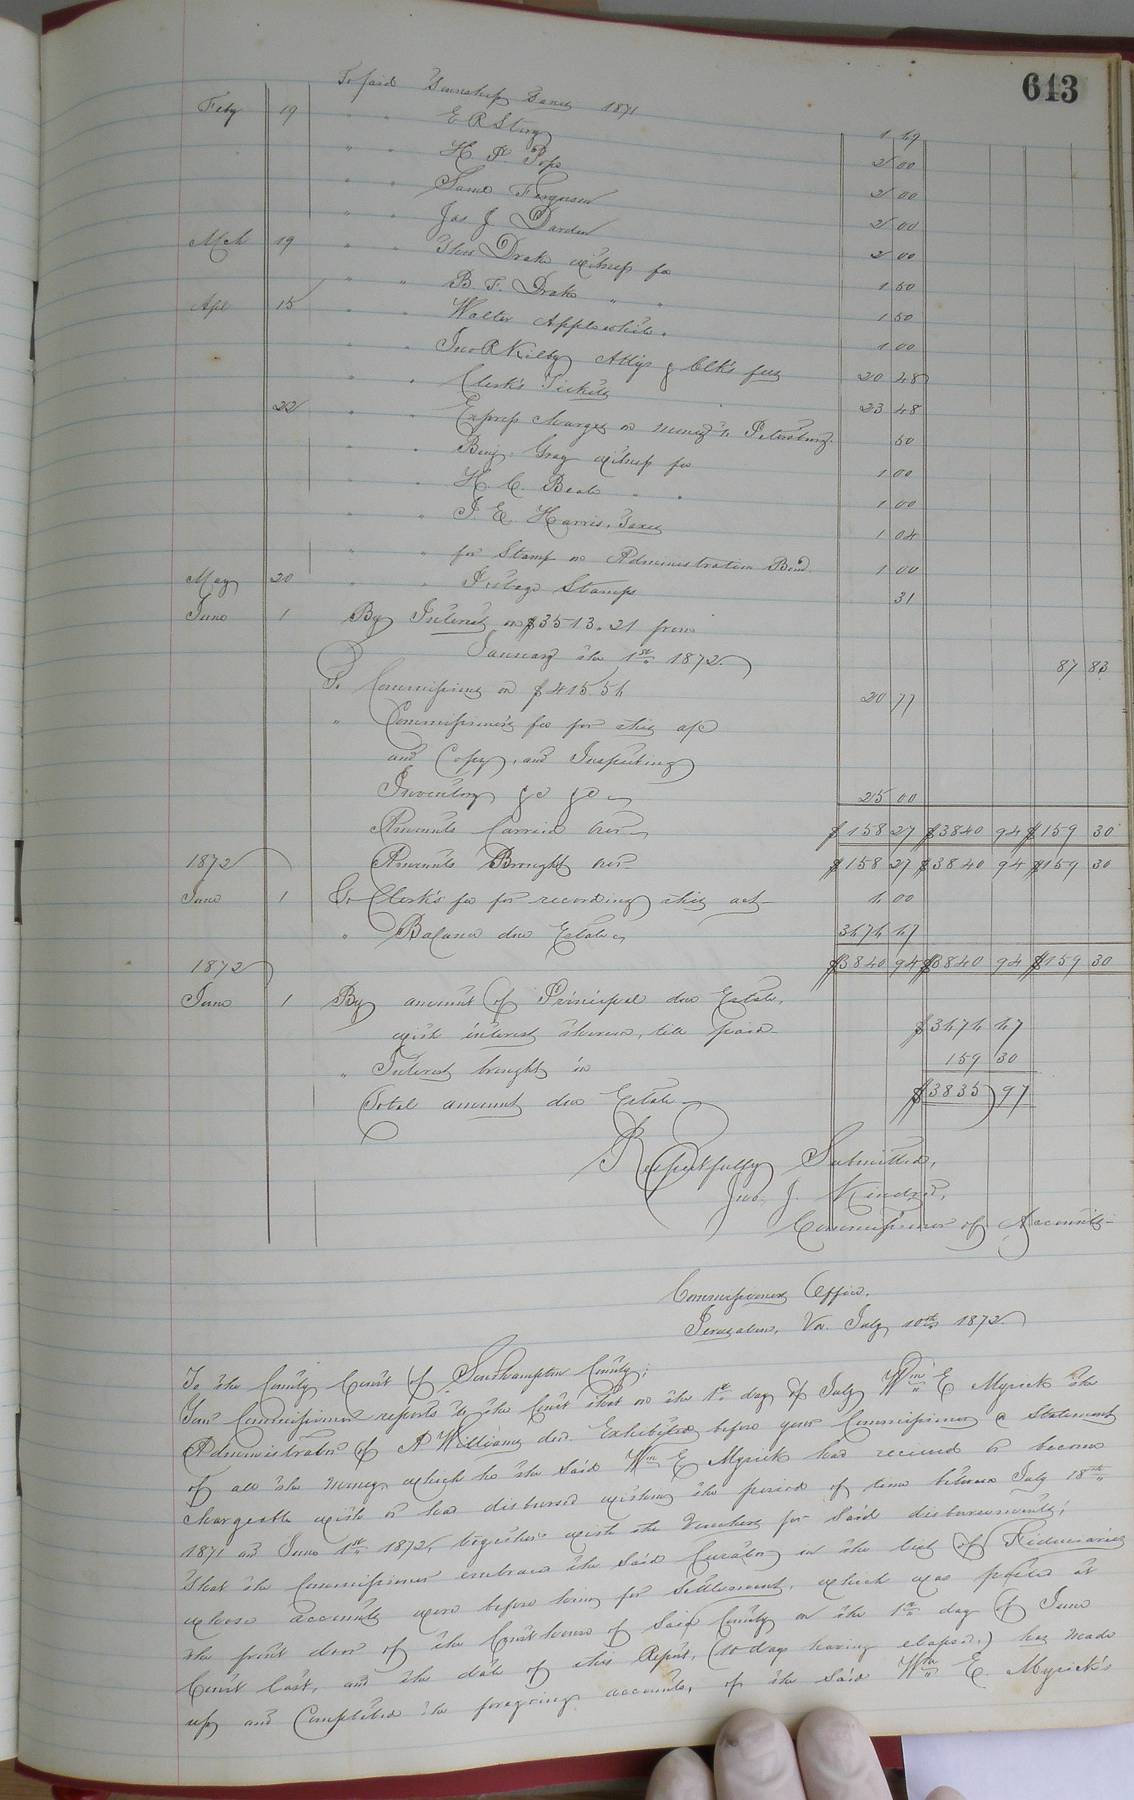 643
To paid Township Taxes 1871
Feby 19 " " E R Story 1 69
" " H. P. Pope 2 00
" " Saml Ferguson 2 00
" " Jas J Darden 2 00
Mch 19 " " Thos Drake witness fee 2 00
" " B. F. Drake " " 1 50
Apl 15 " " Walter Applewhite. 1 50
" " Jno R Kilby Attys & Clk's fees 1 00
" " Clerk's Tickets 20 48
22 " " Express charges on money to Petersburg. 23 48
" Benj. Gray witness fee 50
" " H. C. Beale " " 1 00
" " J. E. Harris, Taxes 1 00
" " for Stamp on Administration Bond 1 04
May 20 " " Postage Stamps 1 00
31
June 1 By Interest on $3513.21 from
January the 1st 1872 87 83
To Commissions on $415.56 20 77
" Commissioner's fee for this a/c
and Copy, and Inspecting
Inventory &c &c 25 00
Amounts Carried over $158 27 $3840 94 $159 30
1872 Amounts Brought over $158 27 $3840 94 $159 30
June 1 To Clerk's fee for recording this act 6 00
" Balance due Estate 3676 67
1872 $3840 94 $3840 94 $159 30
June 1 By amount of Principal due Estate,
with interest thereon, till paid $3676 67
" Interest brought in 159 30
Total amount due Estate $3835 97
Respectfully Submitted,
Jno. J. Kindred,
Commissioner of Accounts
Commissioners Office.
Jerusalem, Va. July 10th 1872
To the County Court of Southampton County;
Your Commissioner reports to the Court that on the 1st day of July Wm E Myrick the
Administrator of A Williams dec. Exhibited before your Commissioner a Statement
of all the money which he the Said Wm E Myrick had received or become
chargeable with or had disbursed within the period of time between July 18th
1871 and June 1st 1872, together with the Vouchers for Said disbursements;
that the Commissioner embraced the Said Curator in the list of Fiduciaries
whose accounts were before him for Settlement, which was posted at
the front door of the Court house of Said County on the 1st day of June
Court last, and the date of this Report, (10 days having elapsed,) has made
up and Completed the foregoing accounts, of the Said Wm E. Myrick's